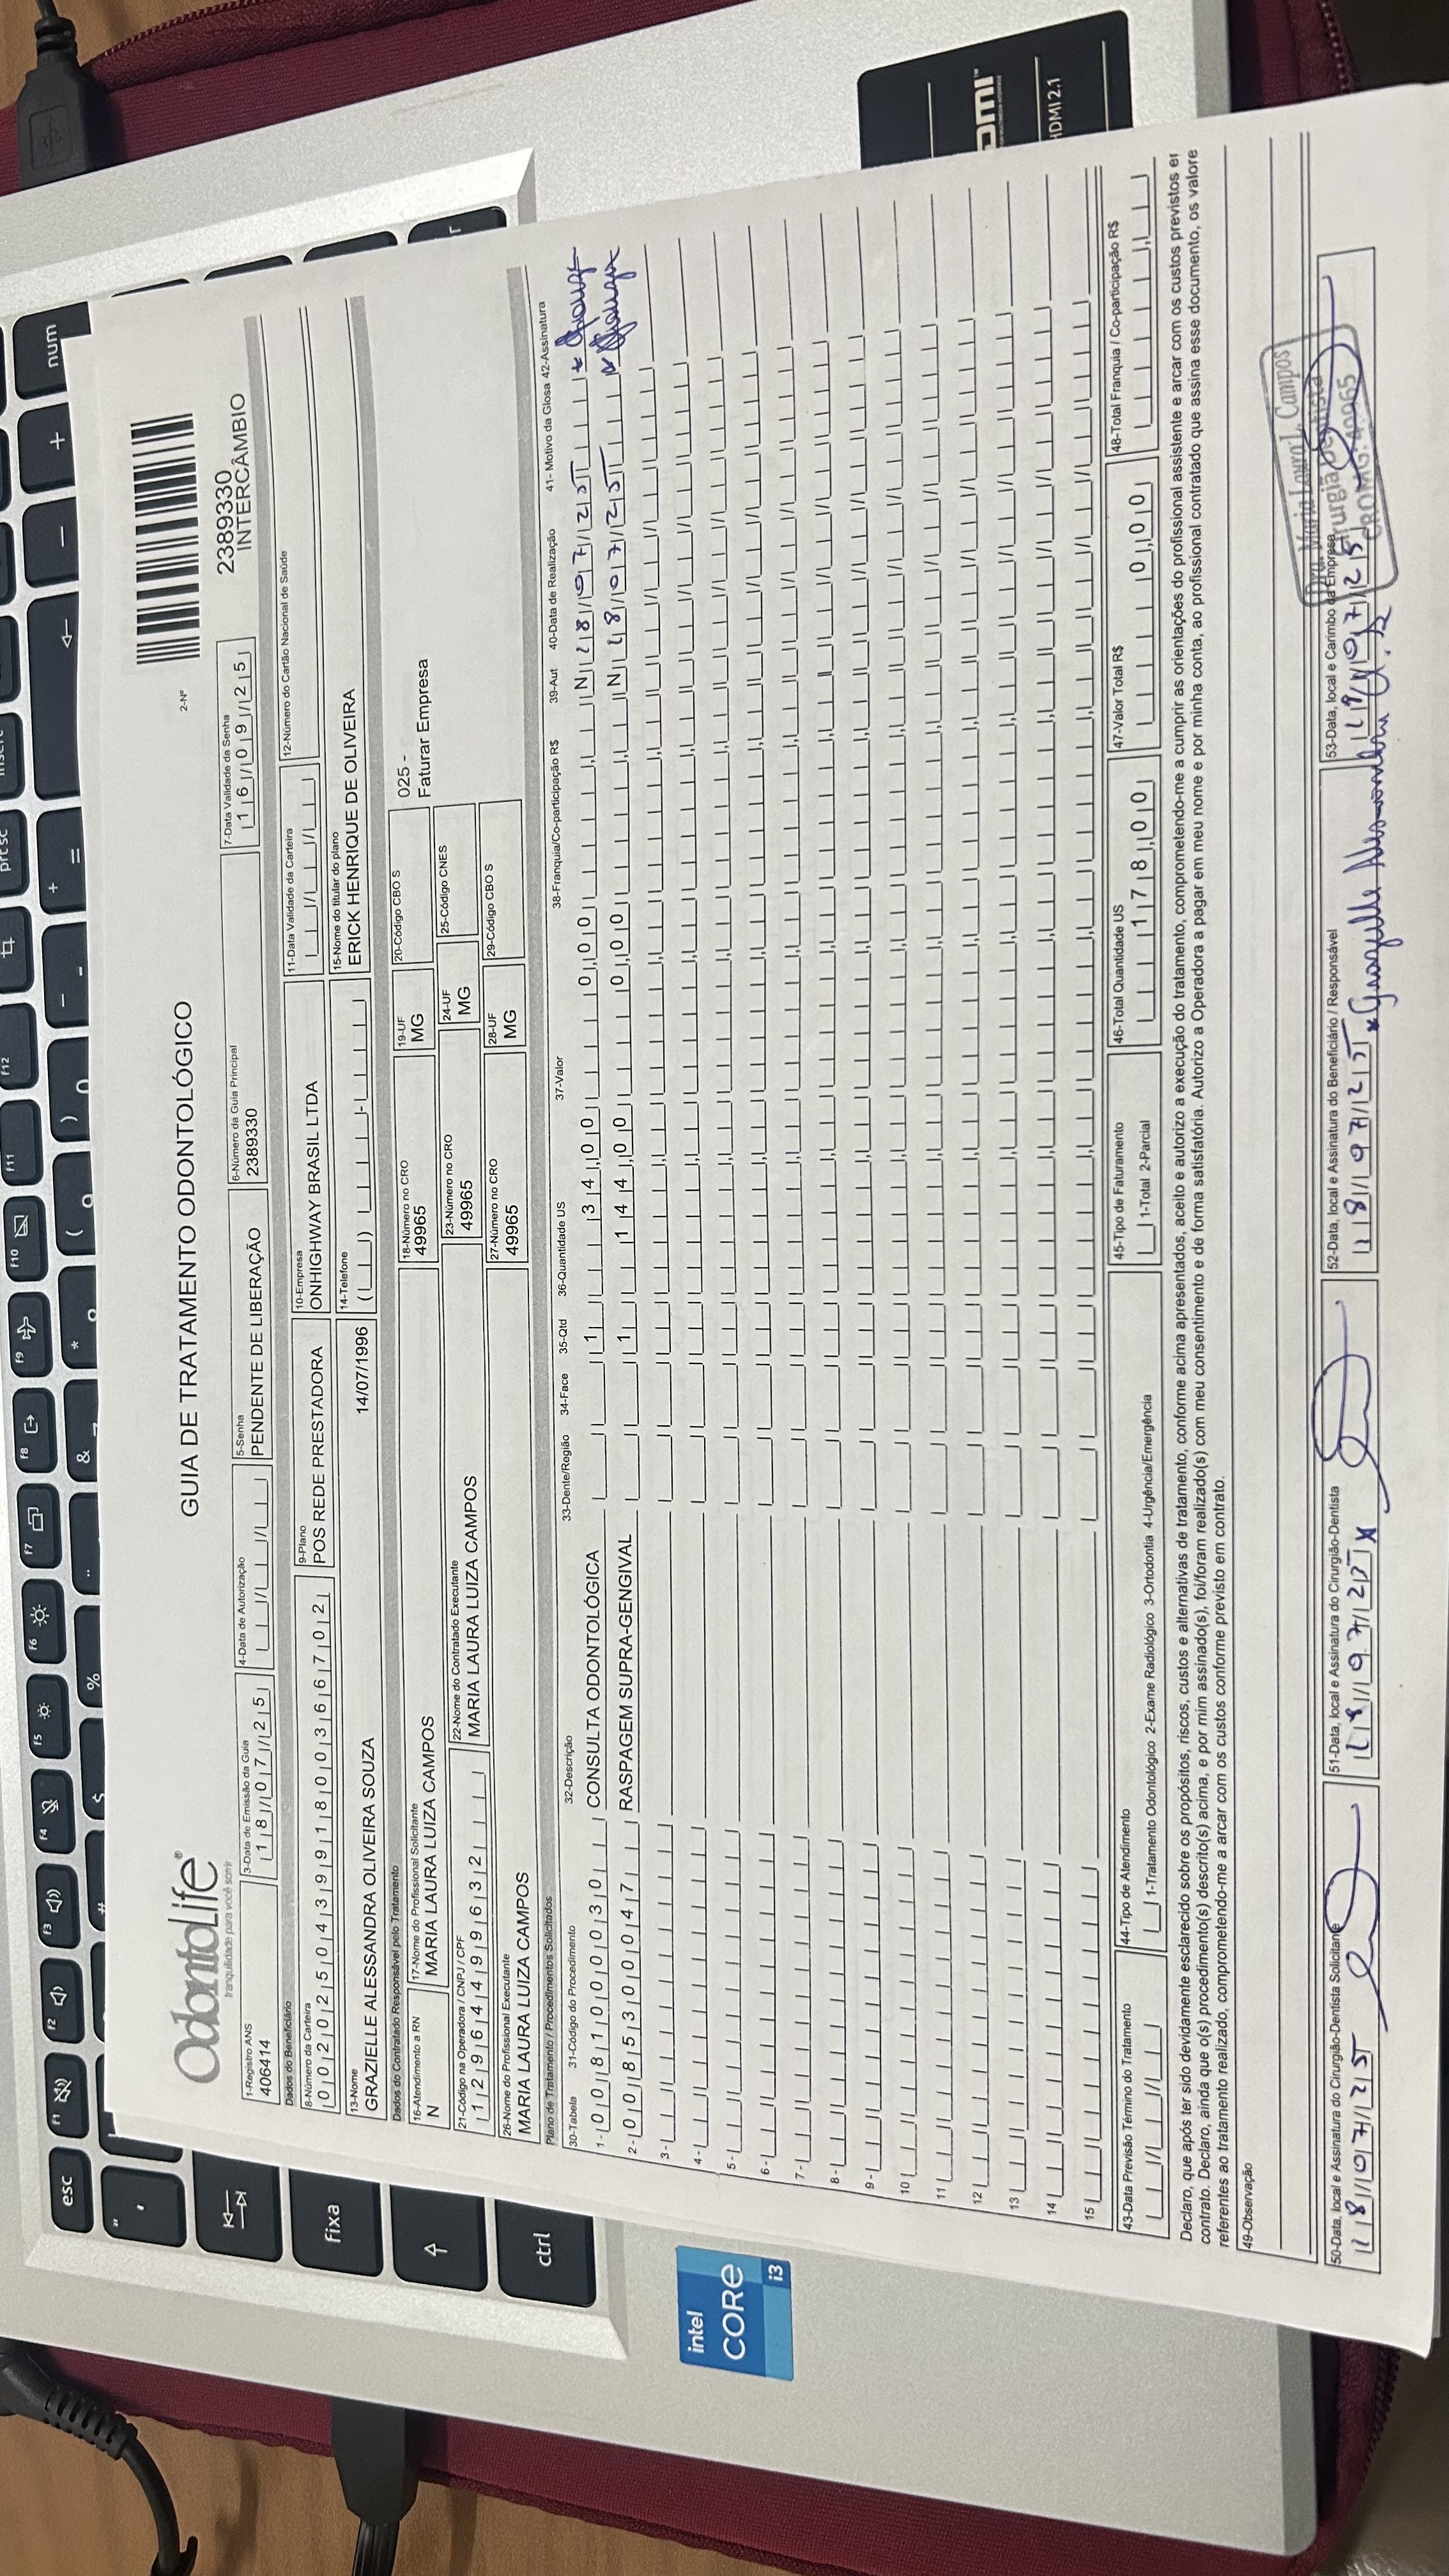 OdontoLife®
tranquilidade para você sorrir
GUIA DE TRATAMENTO ODONTOLÓGICO
2-Nº
2389330
INTERCÂMBIO
1-Registro ANS
406414
3-Data de Emissão da Guia
18/07/25
4-Data de Autorização
5-Senha
PENDENTE DE LIBERAÇÃO
6-Número da Guia Principal
2389330
7-Data Validade da Senha
16/09/25
Dados do Beneficiário
8-Número da Carteira
002025043991800366702
9-Plano
POS REDE PRESTADORA
10-Empresa
ONHIGHWAY BRASIL LTDA
11-Data Validade da Carteira
12-Número do Cartão Nacional de Saúde
13-Nome
GRAZIELLE ALESSANDRA OLIVEIRA SOUZA
14/07/1996
14-Telefone
15-Nome do titular do plano
ERICK HENRIQUE DE OLIVEIRA
Dados do Contratado Responsável pelo Tratamento
16-Atendimento a RN
N
17-Nome do Profissional Solicitante
MARIA LAURA LUIZA CAMPOS
18-Número no CRO
49965
19-UF
MG
20-Código CBO S
025 -
Faturar Empresa
21-Código na Operadora / CNPJ / CPF
12964499632
22-Nome do Contratado Executante
MARIA LAURA LUIZA CAMPOS
23-Número no CRO
49965
24-UF
MG
25-Código CNES
26-Nome do Profissional Executante
MARIA LAURA LUIZA CAMPOS
27-Número no CRO
49965
28-UF
MG
29-Código CBO S
Plano de Tratamento / Procedimentos Solicitados
30-Tabela 31-Código do Procedimento 32-Descrição 33-Dente/Região 34-Face 35-Qtd 36-Quantidade US 37-Valor 38-Franquia/Co-participação R$ 39-Aut 40-Data de Realização 41- Motivo da Glosa 42-Assinatura
1- 00 81000030 CONSULTA ODONTOLÓGICA 1 34,00 0,00 N 18/07/25
2- 00 85300047 RASPAGEM SUPRA-GENGIVAL 1 144,00 0,00 N 18/07/25
3-
4-
5-
6-
7-
8-
9-
10
11
12
13
14
15
43-Data Previsão Término do Tratamento
44-Tipo de Atendimento
1-Tratamento Odontológico 2-Exame Radiológico 3-Ortodontia 4-Urgência/Emergência
45-Tipo de Faturamento
1-Total 2-Parcial
46-Total Quantidade US
178,00
47-Valor Total R$
0,00
48-Total Franquia / Co-participação R$
Declaro, que após ter sido devidamente esclarecido sobre os propósitos, riscos, custos e alternativas de tratamento, conforme acima apresentados, aceito e autorizo a execução do tratamento, comprometendo-me a cumprir as orientações do profissional assistente e arcar com os custos previstos er
contrato. Declaro, ainda que o(s) procedimento(s) descrito(s) acima, e por mim assinado(s), foi/foram realizado(s) com meu consentimento e de forma satisfatória. Autorizo a Operadora a pagar em meu nome e por minha conta, ao profissional contratado que assina esse documento, os valore
referentes ao tratamento realizado, comprometendo-me a arcar com os custos conforme previsto em contrato.
49-Observação
50-Data, local e Assinatura do Cirurgião-Dentista Solicitante
18/07/25
51-Data, local e Assinatura do Cirurgião-Dentista
18/07/25 x
52-Data, local e Assinatura do Beneficiário / Responsável
18/07/25
53-Data, local e Carimbo da Empresa
Dra. Maria Laura L. Campos
Cirurgiã Dentista
CROMG: 49965
esc
F1
F2
F3
F4
F5
F6
F7
F8
F9
F10
F11
F12
prt sc
insert
num
fixa
ctrl
intel
CORE
i3
HDMI 2.1